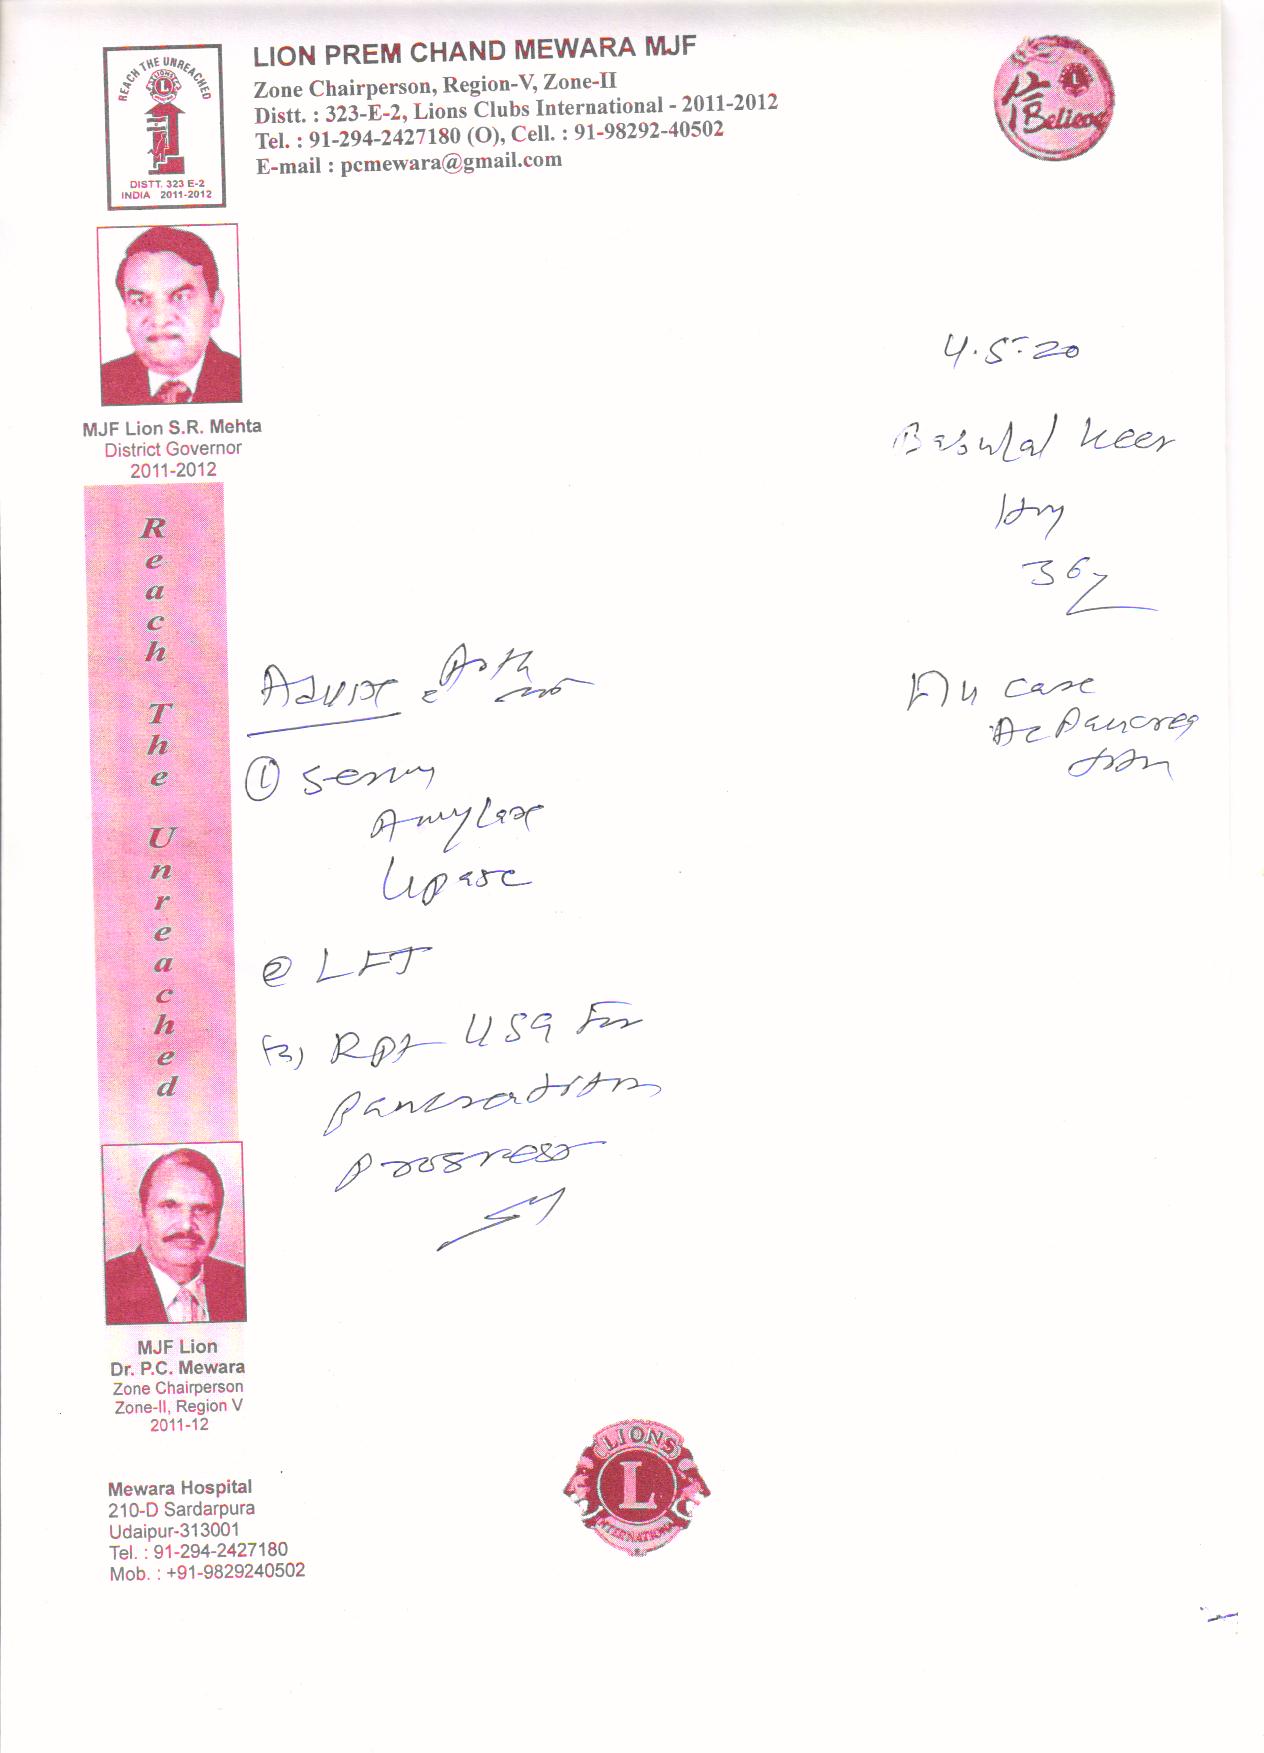 LION PREM CHAND MEWARA MJF
Zone Chairperson, Region-V, Zone-II
Distt. : 323-E-2, Lions Clubs International - 2011-2012
Tel. : 91-294-2427180 (O), Cell. : 91-98292-40502
E-mail : pcmewara@gmail.com
REACH THE UNREACHED
DISTT. 323 E-2
INDIA 2011-2012
I Believe
MJF Lion S.R. Mehta
District Governor
2011-2012
4.5.20
Keer
36
case
Ac Pancrea
Advise
① Serum
Amylase
Lipase
② LFT
(3) Rpt USG For
Pancreatitis
Progress
Reach The Unreached
MJF Lion
Dr. P.C. Mewara
Zone Chairperson
Zone-II, Region V
2011-12
Mewara Hospital
210-D Sardarpura
Udaipur-313001
Tel. : 91-294-2427180
Mob. : +91-9829240502
LIONS
L
INTERNATIONAL